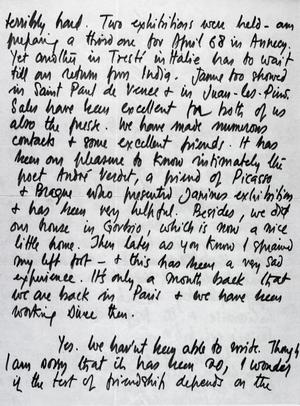 terribly hard. Two exhibitions were held - am
preparing a third one for April 68 in Annecy.
Yet another in Trestè in Italie has to wait
till our return from India. Janine too showed
in Saint Paul de Vence & in Juan-les-Pins.
Sales have been excellent for both of us
also the press. We have made numerous
contacts & some excellent friends. It has
been our pleasure to know intimately the
poet André Verdet, a friend of Picasso
& Braque who presented Janines exhibition
& has been very helpful. Besides, we did
our house in Gorbio, which is now a nice
little home. Then later as you know I sprained
my left foot - & this has been a very sad
experience. It's only a month back that
we are back in Paris & we have been
working since then.
Yes. We havn't been able to write. Though
I am sorry that it has been so, I wonder
if the test of friendship depends on the